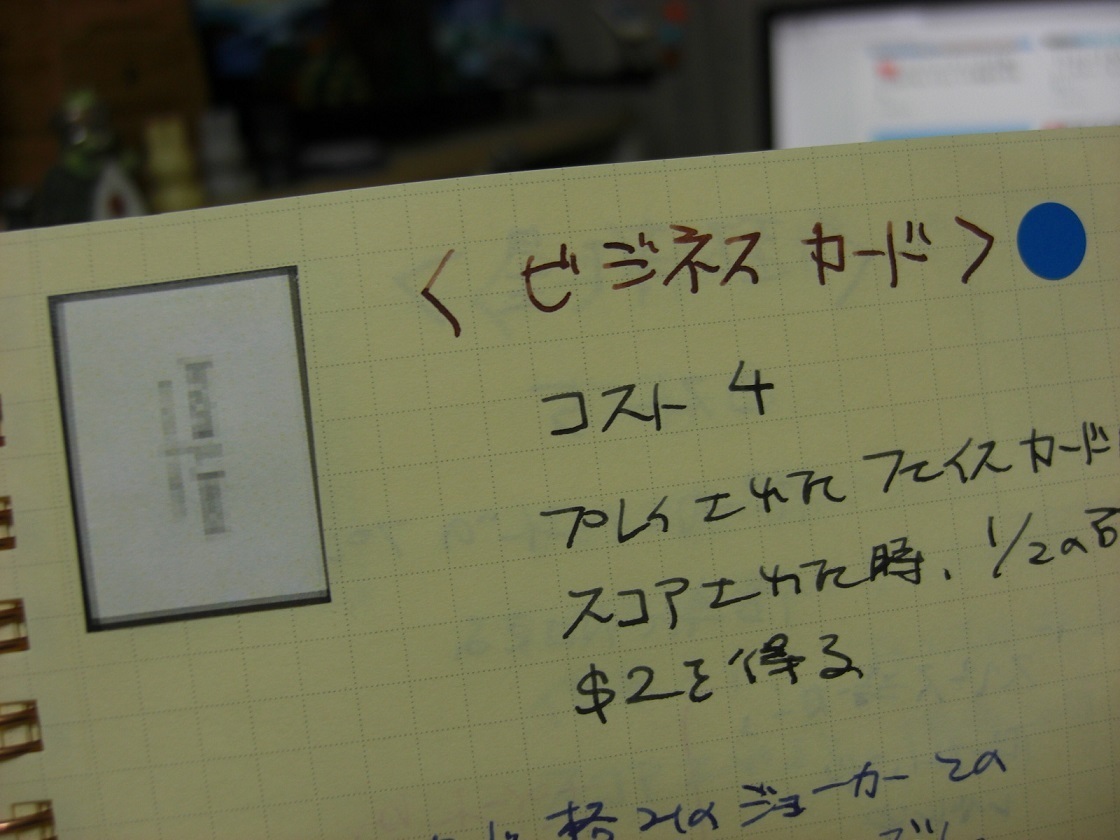 〈ビジネスカード〉
コスト 4
プレイされた フェイスカード
スコアされた時、1/2の
$2を得る
ジョーカー との